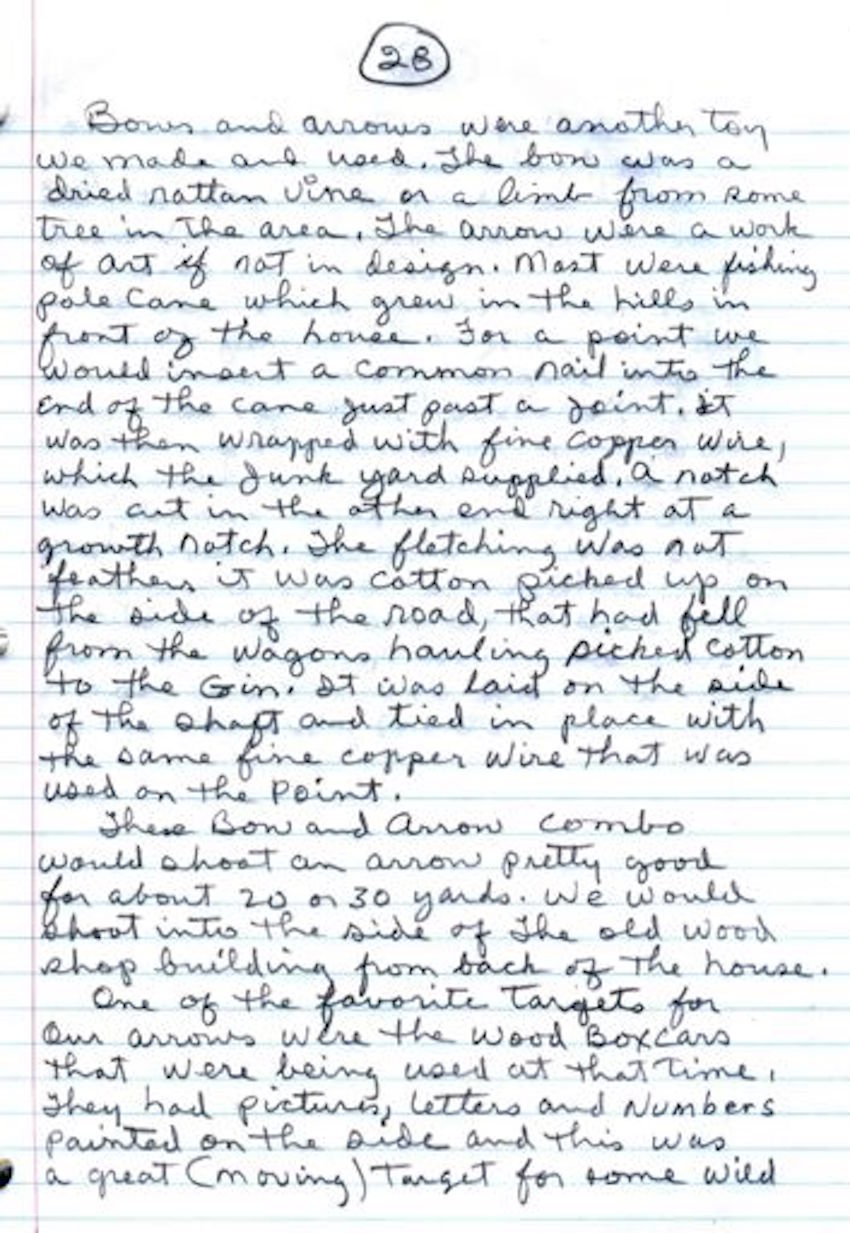 28
Bows and arrows were another toy
we made and used. The bow was a
dried rattan vine or a limb from some
tree in the area. The arrow were a work
of art if not in design. Most were fishing
pole cane which grew in the hills in
front of the house. For a point we
would insert a common nail into the
end of the cane just past a joint. It
was then wrapped with fine copper wire,
which the Junk yard supplied. A notch
was cut in the other end right at a
growth notch. The fletching was not
feathers it was cotton picked up on
the side of the road, that had fell
from the wagons hauling picked cotton
to the Gin. It was laid on the side
of the shaft and tied in place with
the same fine copper wire that was
used on the point.
These Bow and Arrow combo
would shoot an arrow pretty good
for about 20 or 30 yards. We would
shoot into the side of the old wood
shop building from back of the house.
One of the favorite targets for
our arrows were the wood Boxcars
that were being used at that time.
They had pictures, letters and Numbers
painted on the side and this was
a great (moving) target for some wild